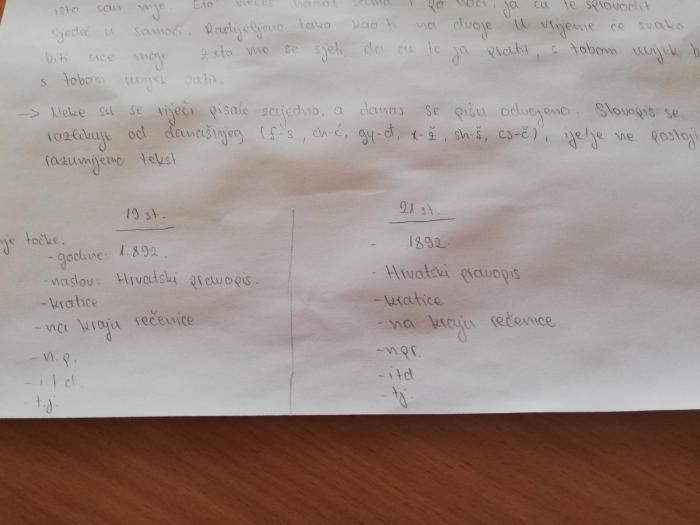 isto san nije. Eto večes sama i po noći, ja ću te sprovodit
sjedeć u samoći. Razdijeljeno tako kao ti na dvoje. U vrijeme će svako
biti srce moje zato me se sjeti da ću te ja pratit, s tobom uvijek
s tobom uvijek patit.
-> Neke su se riječi pisale zajedno, a danas se pišu odvojeno. Slovopis se
razlikuje od današnjeg (f-s, ch-ć, gy-đ, x-ž, sh-š, cs-č), ije/je ne postoji
razumijemo tekst
19 st.
nje točke.
- godine: 1.892.
- naslov: Hrvatski pravopis.
- kratice
- na kraju rečenice
- n.p.
- i.t.d.
- t.j.
21 st.
- 1892.
- Hrvatski pravopis
- kratice
- na kraju rečenice
- npr.
- itd
- tj.